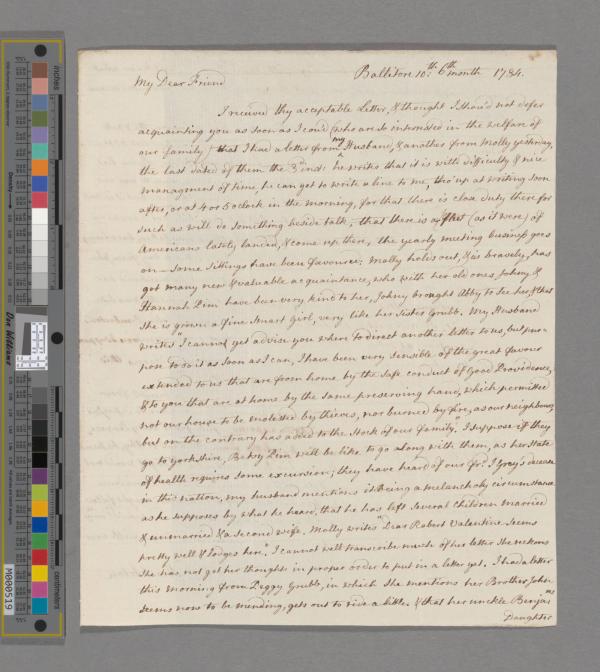 Ballitore 10th. 6th month 1784.
My Dear Friend
I received thy acceptable Letter, & thought I shou'd not defer
acquainting you as soon as I cou'd (who are so interested in the welfare of
our family) that I had a letter from my Husband, & another from Molly yesterday,
the last dated of them the 3d inst: he writes that it is with difficulty & nice
management of time he can get to write a line to me, tho' up at writing soon
after, or at 4 or 5 oclock in the morning, for that there is close duty there for
such as will do something beside talk, that there is a fleet (as it were) of
Americans lately landed, & come up there, the yearly meeting business goes
on - some sittings have been favoured: Molly holds out, & is bravely, has
got many new & valuable acquaintance, who with her old ones Johny &
Hannah Zim have been very kind to her, Johny brought Abby to see her, & that
she is grown a fine smart girl, very like her sister Grubb. My Husband
writes "I cannot yet advise you where to direct another letter to us, but pur=
pose to do it as soon as I can, I have been very sensible of the great favour
extended to us that are from home by the safe conduct of Good Providence,
& to you that are at home by the same preserving hand, which permitted
not our house to be molested by thieves, nor burned by fire, as our neighbours,
but on the contrary has added to the stock of our family." I suppose if they
go to yorkshire, Betsey Zim will be like to go along with them, as her state
of health requires some excursion; they have heard of our fr: I Gray's decease
in this nation, my husband mentions it being a melancholy circumstance
as he supposes by what he heard, that he has left several children married
& unmarried & a second wife. Molly writes "Dear Robert Valentine seems
pretty well & lodges here." I cannot well transcribe much of her letter she reckons
she has not got her thoughts in proper order to put in a letter yet. I had a letter
this morning from Peggy Grubb, in which she mentions her Brother John
seems now to be mending, gets out to ride a little & that her unckle Benjas
Daughter
inches
centimeters
Don Williams
M000519